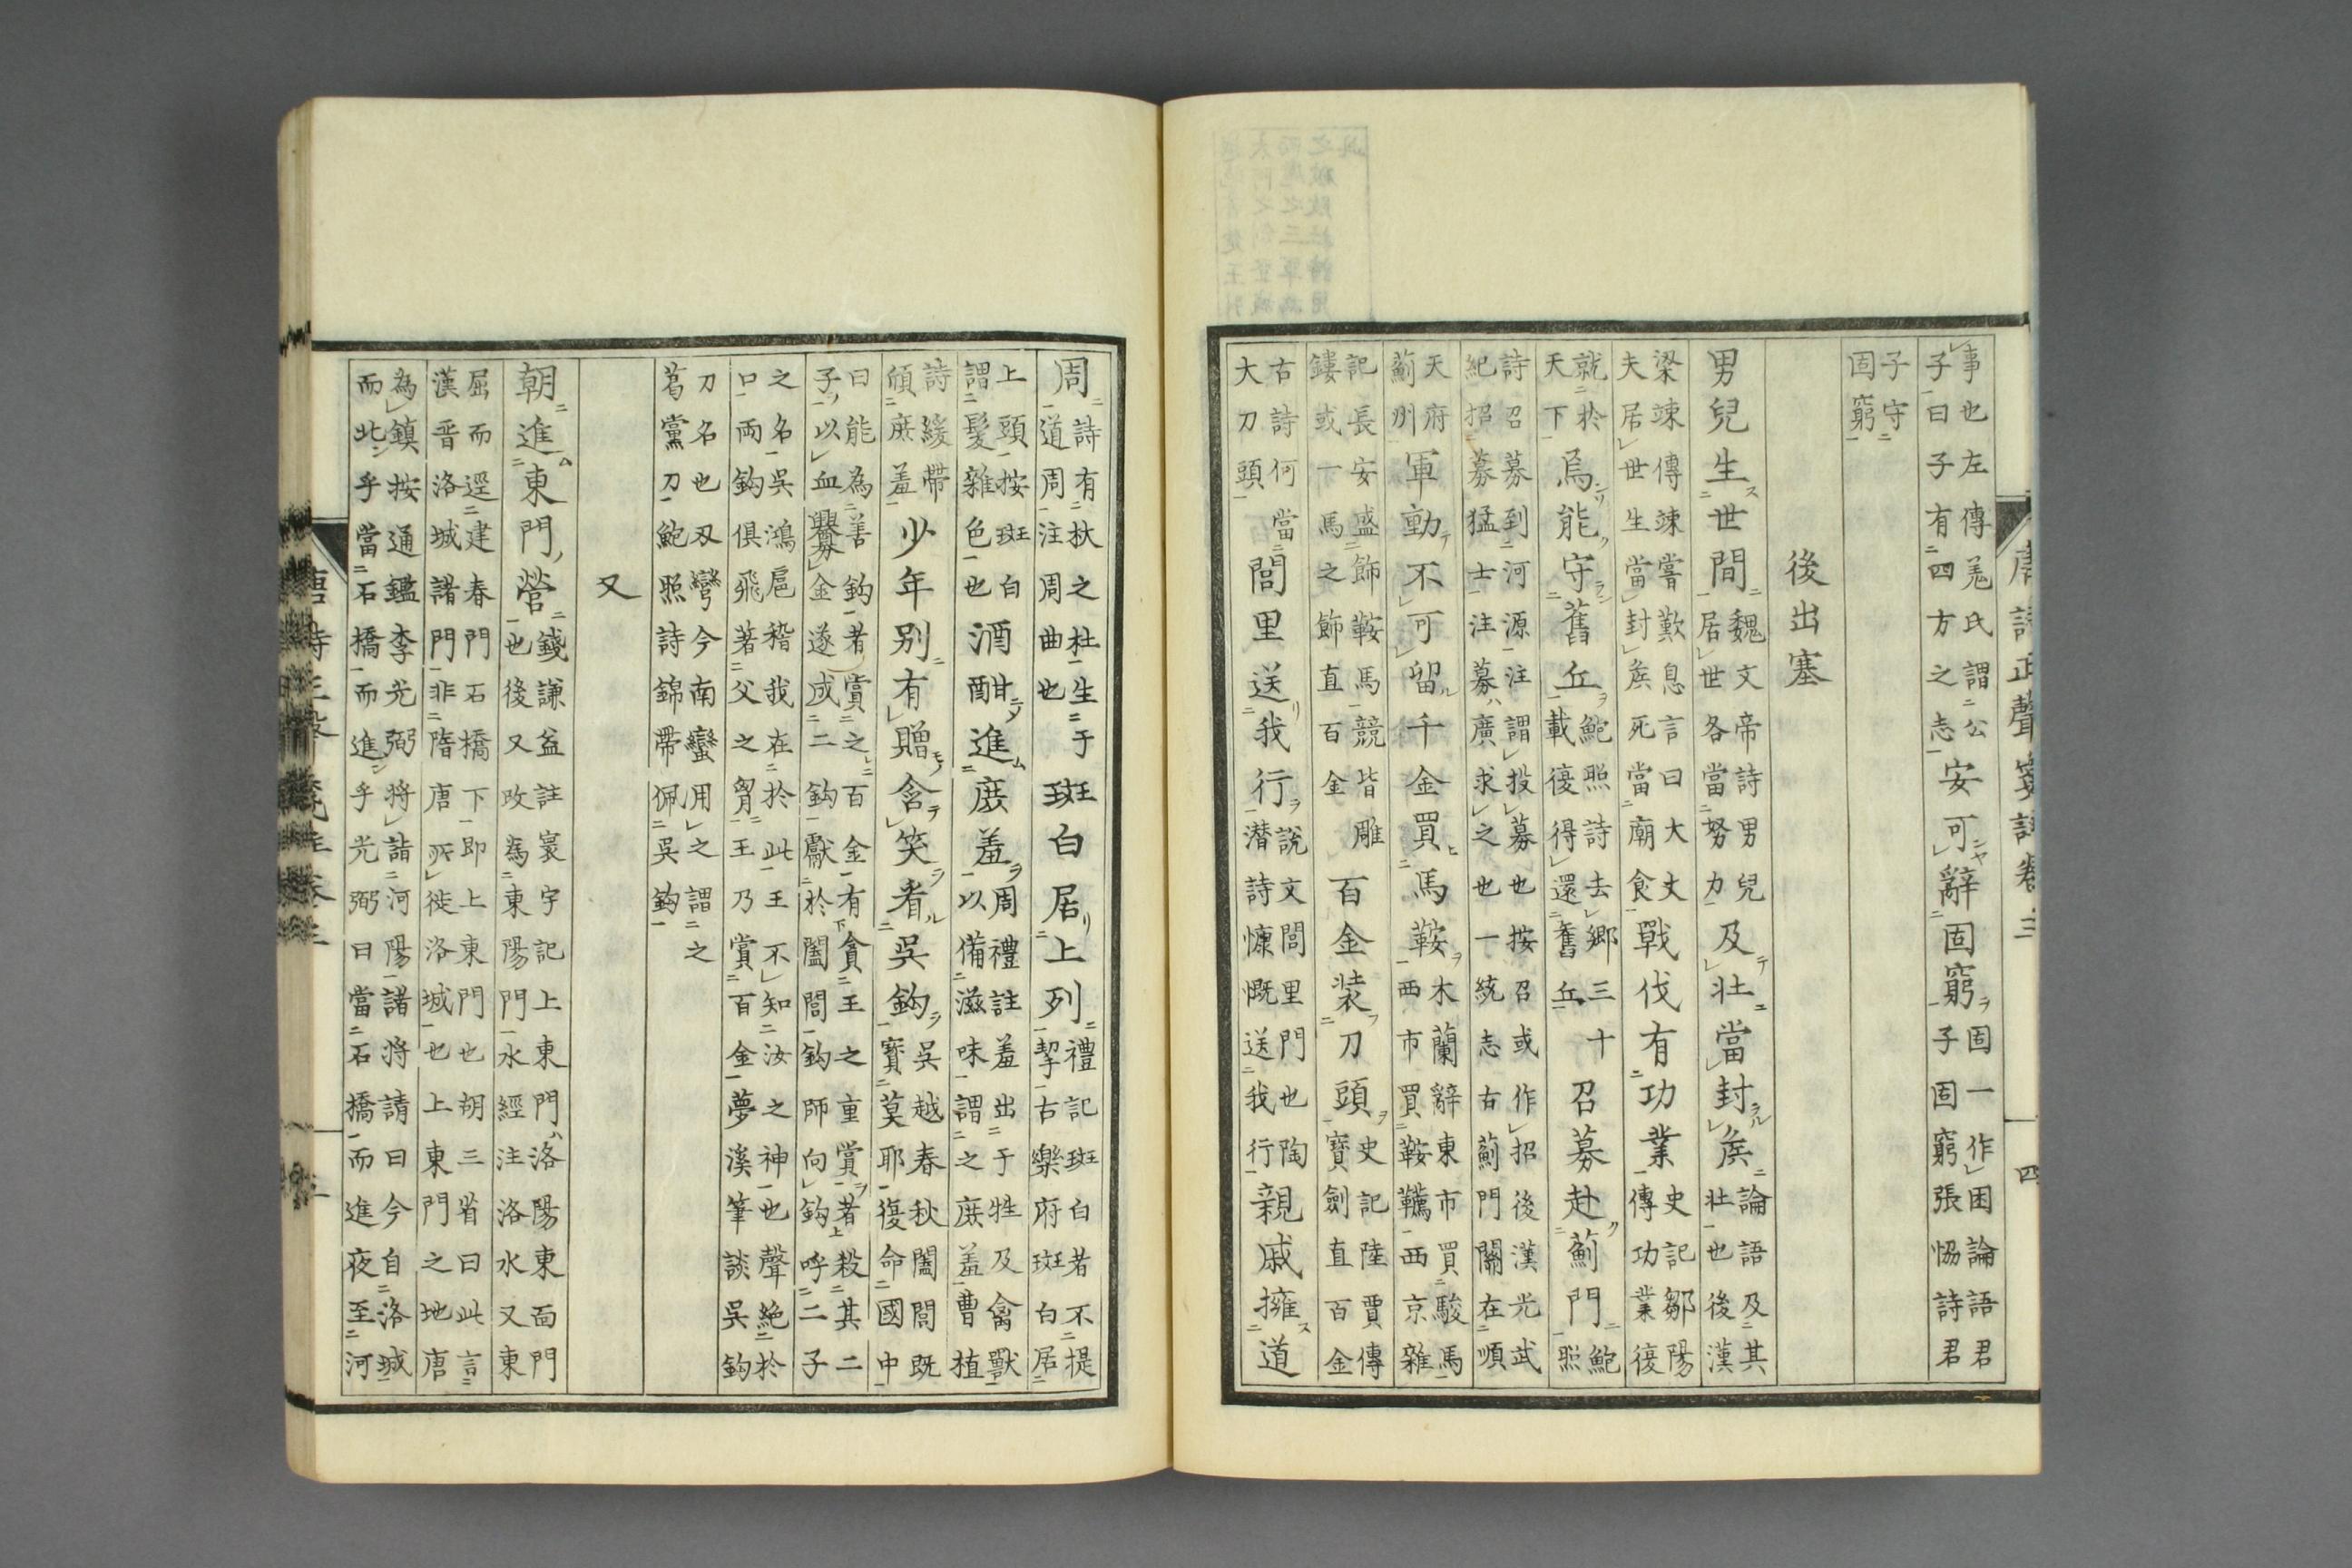 唐詩正聲箋註卷三 四
事也左傳姜氏謂公子曰子有四方之志安可辭固窮固一作困論語君子固窮張恊詩君
子守固窮
後出塞
男兒生世間魏文帝詩男兒居世各當努力及壯當封矦論語及其壯也後漢
梁竦傳竦嘗歎息言曰大丈夫居世生當封矦死當廟食戰伐有功業史記鄒陽傳功業復
就於天下焉能守舊丘鮑照詩去郷三十載復得還舊丘召募赴薊門鮑照
詩召募到河源注謂投募也按召或作招後漢光武紀招募猛士注募廣求之也一統志右薊門關在順
天府薊州軍動不可留千金買馬鞍木蘭辭東市買駿馬西市買鞍韉西京雜
記長安盛飾鞍馬競皆雕鏤或一馬之飾直百金百金装刀頭史記陸賈傳寶劍直百金
古詩何當大刀頭閭里送我行說文閭里門也陶潜詩慷慨送我行親戚擁道
周詩有杕之杜生于道周注周曲也斑白居上列禮記斑白者不提挈古樂府斑白居
上頭按斑白謂髮雜色也酒酣進庶羞周禮註羞出于牲及禽獸以備滋味謂之庶羞曹植
詩緩帶傾庶羞少年別有贈含笑看吳鈎吳越春秋闔閭既寶莫耶復命國中
曰能為善鈎者賞之百金有貪王之重賞者殺其二子以血釁金遂成二鈎獻於闔閭鈎師向鈎呼二子
之名吳鴻扈稽我在於此王不知汝之神也聲絶於口兩鈎俱飛著父之胷王乃賞百金夢溪筆談吳鈎
刀名也刄彎今南蠻用之謂之葛黨刀鮑照詩錦帶佩吳鈎
又
朝進東門營錢謙益註寰宇記上東門洛陽東面門也後又改為東陽門水經注洛水又東
屈而逕建春門石橋下即上東門也胡三省曰此言漢晋洛城諸門非隋唐所徙洛城也上東門之地唐
為鎮按通鑑李光弼將詣河陽諸將請曰今自洛城而北乎當石橋而進乎光弼曰當石橋而進夜至河